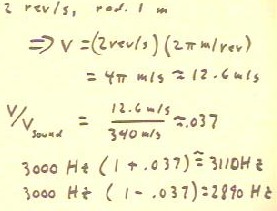 2 rev/s, rad. 1 m
⇒ V = (2 rev/s) (2π m/rev)
= 4π m/s ≈ 12.6 m/s
V/V sound = 12.6 m/s / 340 m/s ≈ .037
3000 Hz (1 + .037) ≈ 3110 Hz
3000 Hz (1 - .037) = 2890 Hz